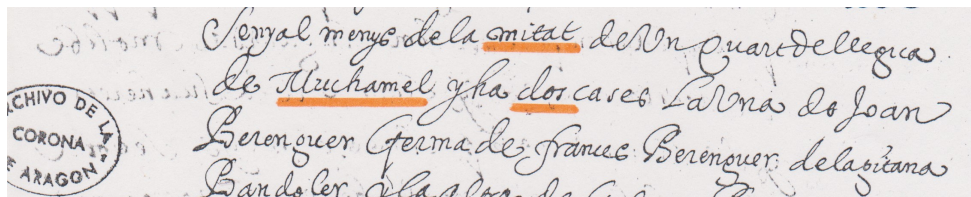 Senyal menys dela mitat de Un quart de llegua
de Muchamel y ha dos cases La Una de Joan
Berenguer Germa de frances Berenguer dela gitana
Bandoler y la
ARCHIVO DE LA
CORONA
DE ARAGON